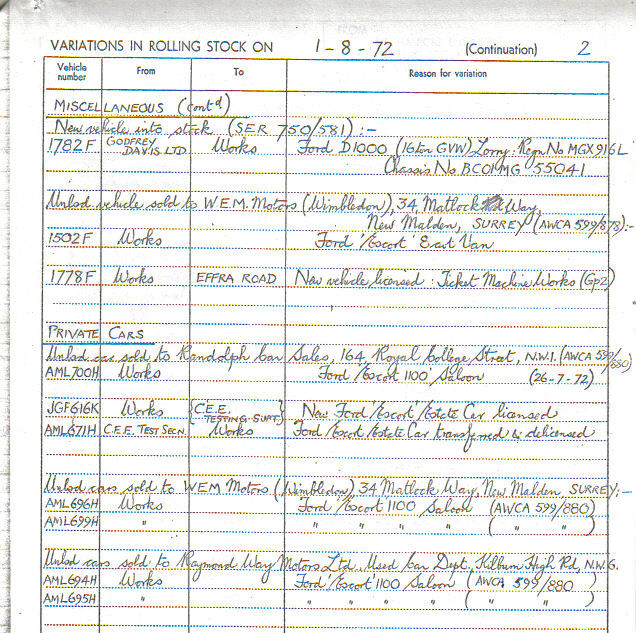 VARIATIONS IN ROLLING STOCK ON 1-8-72 (Continuation) 2
Vehicle number From To Reason for variation
MISCELLANEOUS (contd)
New vehicle into stock (SER 750/581) :-
1782F GODFREY DAVIS LTD Works Ford D1000 (16ton GVW) Lorry: Regn No MGX 916L
Chassis No BC01MG 55041
Unlsd vehicle sold to W.E.M. Motors (Wimbledon), 34, Matlock Way,
New Malden, SURREY (AWCA 599/878):-
1502F Works Ford 'Escort' Van
1778F Works EFFRA ROAD New vehicle licensed: Ticket Machine Works (Gp2)
PRIVATE CARS
Unlsd car sold to Randolph Car Sales, 164, Royal College Street, N.W.1. (AWCA 599/880)
AML700H Works Ford 'Escort 1100' Saloon (26-7-72)
JGF616K Works {C.E.E. TESTING SUPT.} New Ford 'Escort' Estate Car licensed
AML671H C.E.E. TEST SECN Works Ford 'Escort' Estate Car transferred & delicensed
Unlsd cars sold to WEM Motors (Wimbledon), 34 Matlock Way, New Malden, SURREY:-
AML696H Works Ford 'Escort 1100 Saloon (AWCA 599/880)
AML699H " " " " " " ( " " )
Unlsd cars sold to Raymond Way Motors Ltd. Used Car Dept. Kilburn High Rd, N.W.6.
AML694H Works Ford 'Escort' 1100 Saloon (AWCA 599/880
AML695H " " " " " " ( " " )